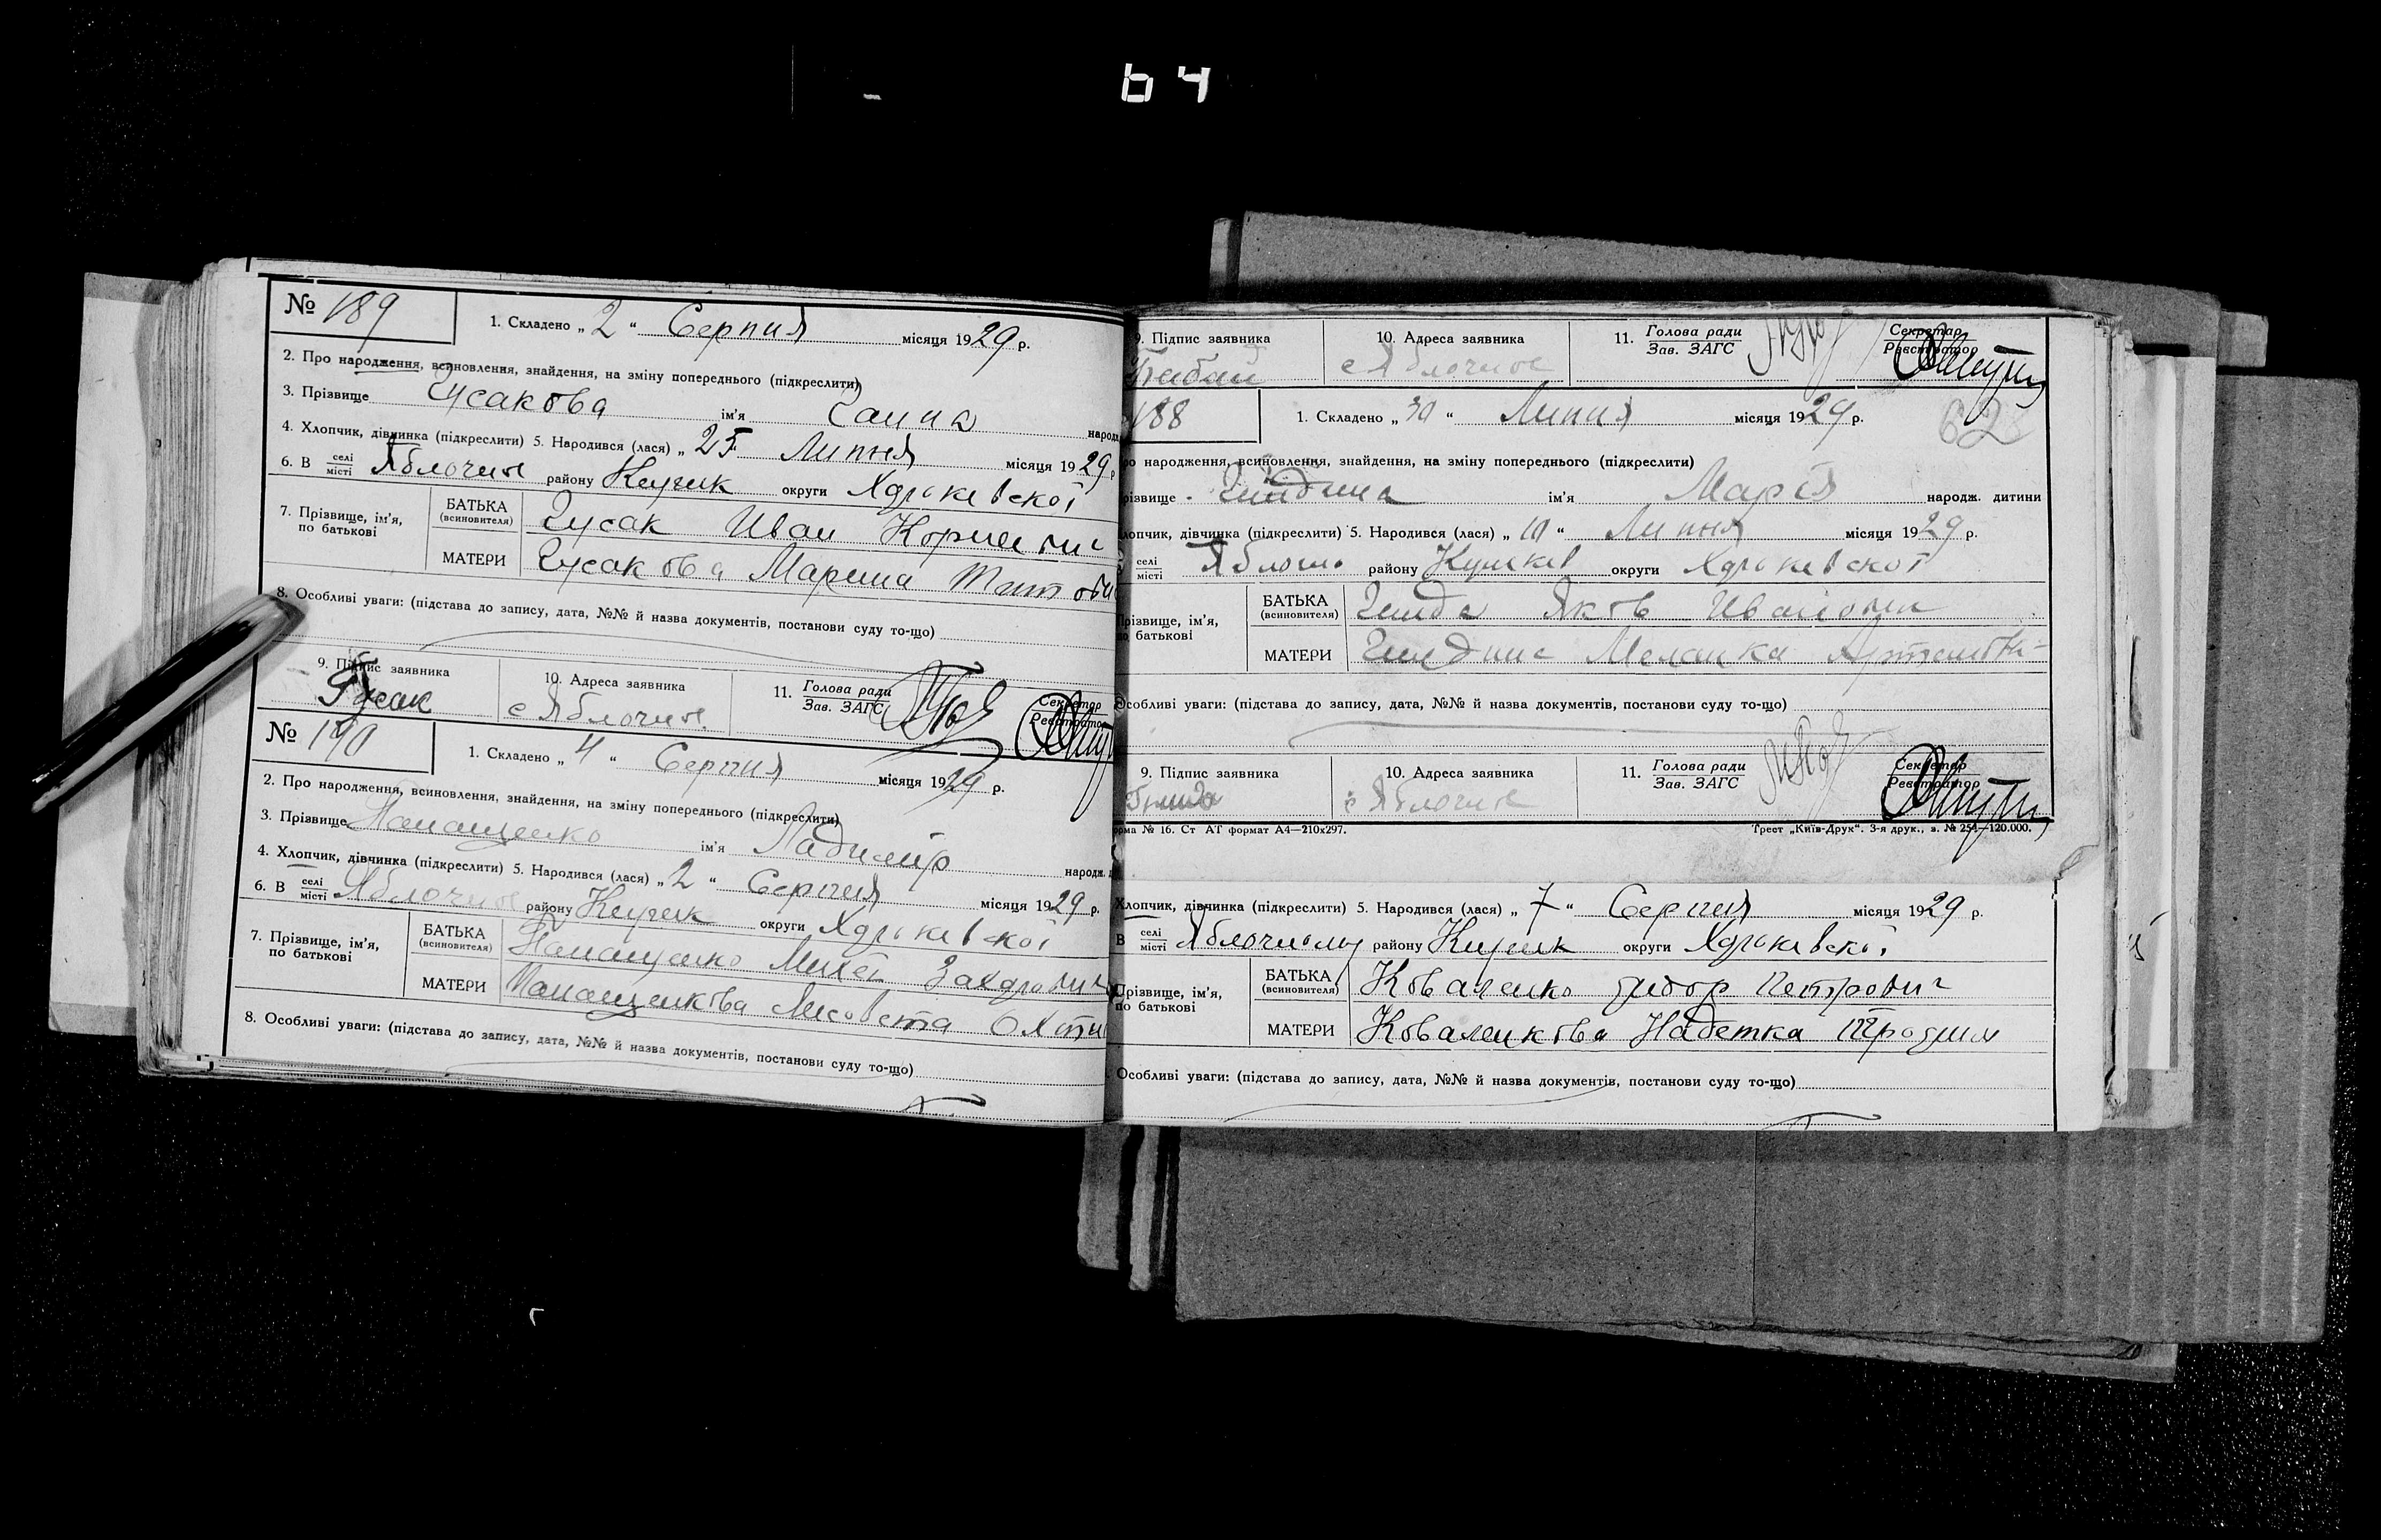 64
№ 189
1. Складено „ 2 “ Серпня місяця 1929 р.
2. Про народження, всиновлення, знайдення, на зміну попереднього (підкреслити)
3. Прізвище Гусакова ім'я Ганна народж
4. Хлопчик, дівчинка (підкреслити) 5. Народився (лася) „ 25 Липня місяця 1929 р
6. В селі місті Яблочне району Кегик округи Харькевської
7. Прізвище, ім'я, по батькові
БАТЬКА (всиновителя) Гусак Иван
МАТЕРИ Гусакова Марина
8. Особливі уваги: (підстава до запису, дата, №№ й назва документів, постанови суду то-що)
9. Підпис заявника 10. Адреса заявника 11. Голова ради Зав. ЗАГС Секретар Реєстратор
Гусак с Яблочне
№ 190
1. Складено „ 4 “ Серпня місяця 1929 р.
2. Про народження, всиновлення, знайдення, на зміну попереднього (підкреслити)
3. Прізвище Панащенко ім'я Ладимір народж.
4. Хлопчик, дівчинка (підкреслити) 5. Народився (лася) „ 2 “ Серпня місяця 1929 р.
6. В селі місті Яблочне району Кегик округи Харькевської
7. Прізвище, ім'я, по батькові
БАТЬКА (всиновителя) Панащенко Михей Захарович
МАТЕРИ Панащенкова Лисовета
8. Особливі уваги: (підстава до запису, дата, №№ й назва документів, постанови суду то-що)
9. Підпис заявника 10. Адреса заявника 11. Голова ради Зав. ЗАГС Секретар Реєстратор
Бабай с Яблочне
188
1. Складено „ 30 “ Липня місяця 1929 р. 62
о народження, всиновлення, знайдення, на зміну попереднього (підкреслити)
різвище ім'я Марія народж. дитини
лопчик, дівчинка (підкреслити) 5. Народився (лася) „ 10 “ Липня місяця 1929 р.
селі місті району округи Харькевської
різвище, ім'я, о батькові
БАТЬКА (всиновителя) Гнида Яков Иванович
МАТЕРИ Меланка
Особливі уваги: (підстава до запису, дата, №№ й назва документів, постанови суду то-що)
9. Підпис заявника 10. Адреса заявника 11. Голова ради Зав. ЗАГС Секретар Реєстратор
Гнида с Яблочне
рма № 16. Ст АТ формат А4—210х297. Трест „Київ-Друк“. 3-я друк., з. № 254—120.000.
Хлопчик, дівчинка (підкреслити) 5. Народився (лася) „ 7 “ Серпня місяця 1929 р.
В селі місті Яблочному району Кегик округи Харькевської
Прізвище, ім'я, по батькові
БАТЬКА (всиновителя) Коваленко Сидор Петрович
МАТЕРИ Коваленкова
Особливі уваги: (підстава до запису, дата, №№ й назва документів, постанови суду то-що)